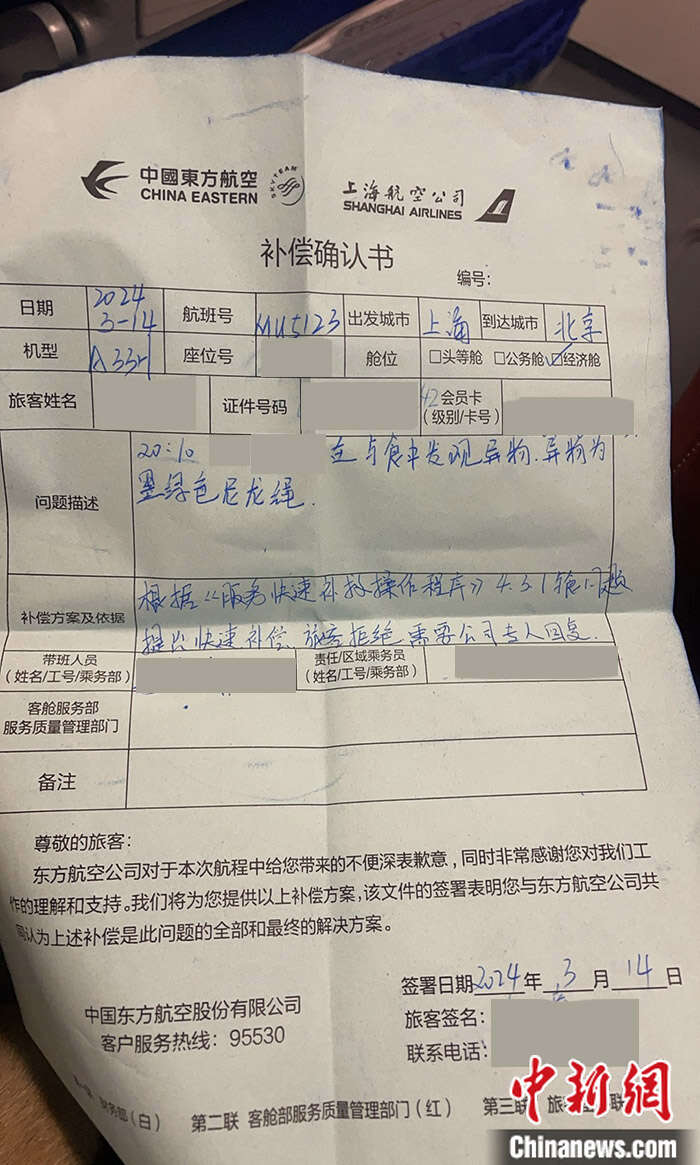 中國東方航空
CHINA EASTERN
SKYTEAM
上海航空公司
SHANGHAI AIRLINES
补偿确认书
编号:
日期 2024 3-14 航班号 MU5123 出发城市 上海 到达城市 北京
机型 A33 座位号 舱位 □头等舱 □公务舱 ☑经济舱
旅客姓名 证件号码 42 会员卡
(级别/卡号)
问题描述 20:10 在与食中发现异物.异物为
墨绿色尼龙绳.
补偿方案及依据 根据《服务快速补救操作程序》4.3.1
提出快速补偿、旅客拒绝.需要公司专人回复.
带班人员
(姓名/工号/乘务部)
责任/区域乘务员
(姓名/工号/乘务部)
客舱服务部
服务质量管理部门
备注
尊敬的旅客:
东方航空公司对于本次航程中给您带来的不便深表歉意,同时非常感谢您对我们工
作的理解和支持。我们将为您提供以上补偿方案,该文件的签署表明您与东方航空公司共
同认为上述补偿是此问题的全部和最终的解决方案。
签署日期 2024 年 3 月 14 日
中国东方航空股份有限公司
旅客签名:
客户服务热线: 95530
联系电话:
务部(白) 第二联 客舱部服务质量管理部门(红) 第三联 旅
中新网
Chinanews.com